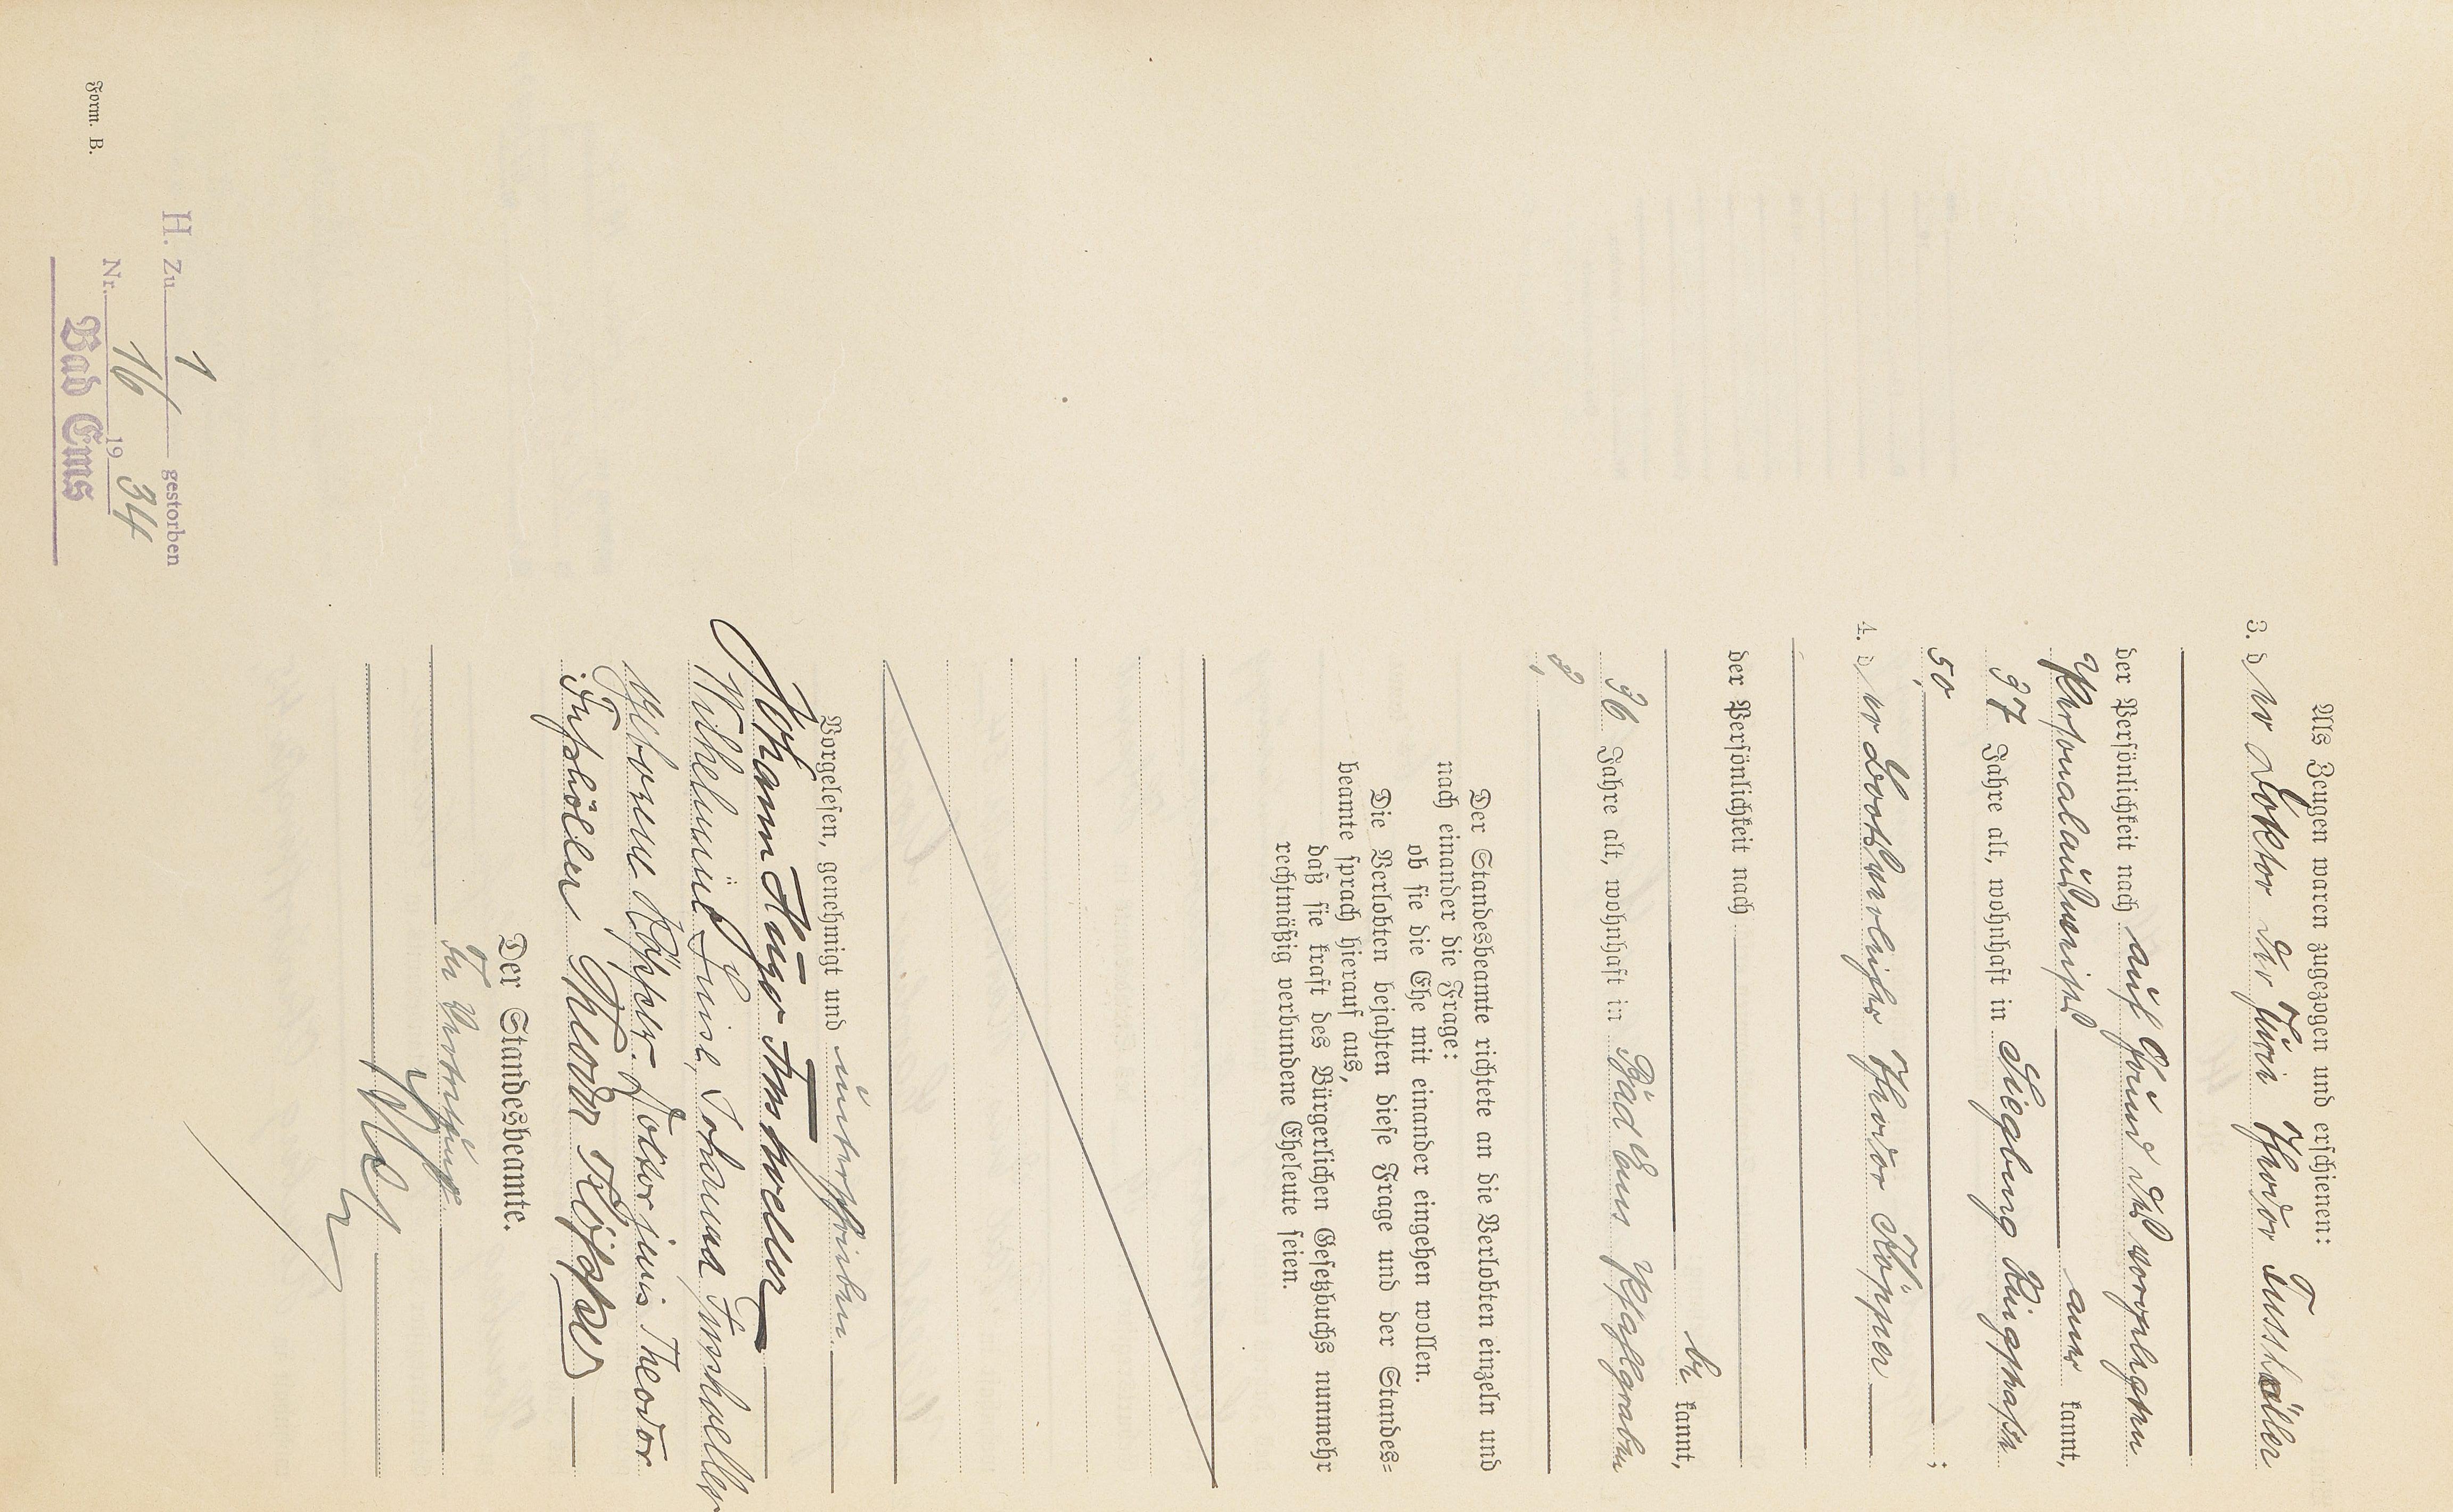 Als Zeugen waren zugezogen und erschienen:
3. d er Doktor der Juris Theodor Fusshöller
der Persönlichkeit nach auf Grund des vorgelegten
Personalausweises aner kannt,
37 Jahre alt, wohnhaft in Siegburg Ringstraße
50, ;
4. d er Bootsverleiher Theodor Köpper
der Persönlichkeit nach
be kannt,
36 Jahre alt, wohnhaft in Bad Ems Pfahlgraben
2,
Der Standesbeamte richtete an die Verlobten einzeln und
nach einander die Frage:
ob sie die Ehe mit einander eingehen wollen.
Die Verlobten bejahten diese Frage und der Standes-
beamte sprach hierauf aus,
daß sie kraft des Bürgerlichen Gesetzbuchs nunmehr
rechtmäßig verbundene Eheleute seien.
Vorgelesen, genehmigt und unterschrieben.
Johann Hugo Fusshoeller
Wilhelmine Luise, Johanna Fusshoeller
geborene Köpper. Doktor juris Theodor
Fußhöller Theodor Köpper
Der Standesbeamte.
In Vertretung
Form. B.
H. Zu 1 gestorben
Nr. 16 1934
Bad Ems